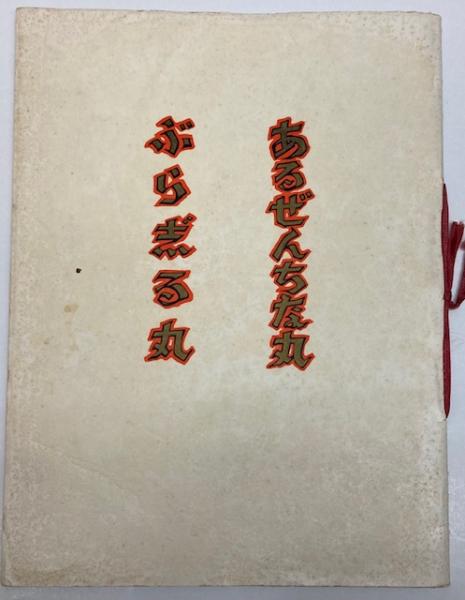 あるぜんちな丸
ぶら志゛る丸